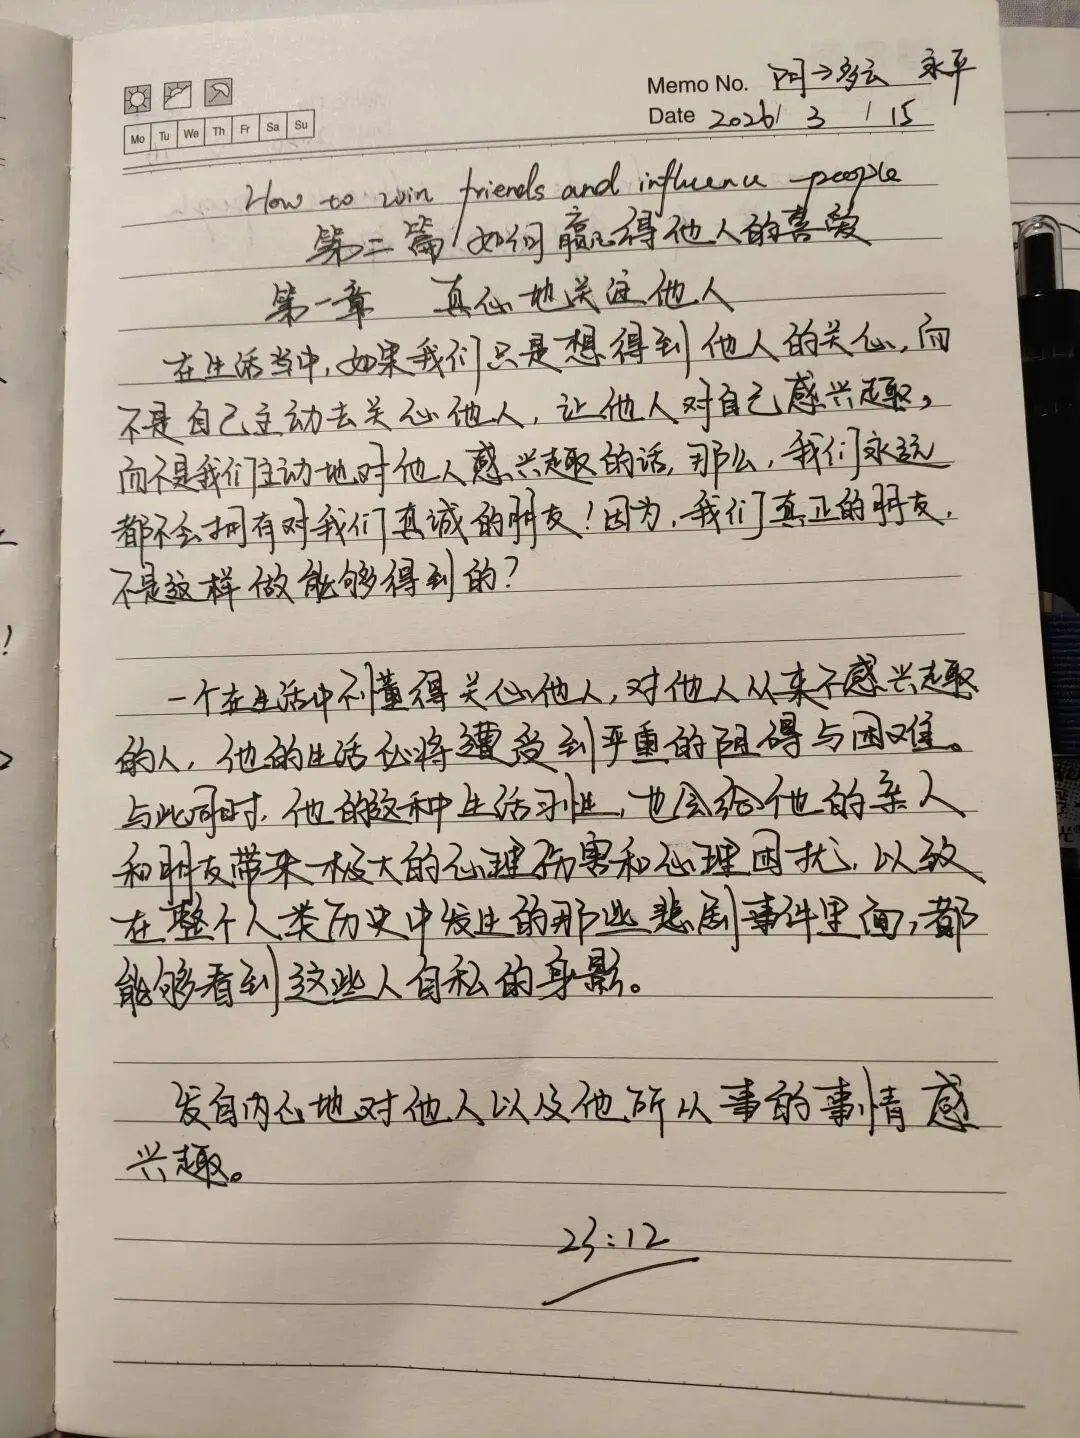 Memo No. 阴→多云 永平
Date 2026/ 3 / 15
Mo Tu We Th Fr Sa Su
How to win friends and influence people
第二篇 如何赢得他人的喜爱
第一章 真心地关注他人
在生活当中,如果我们只是想得到他人的关心,而
不是自己主动去关心他人,让他人对自己感兴趣,
而不是我们主动地对他人感兴趣的话,那么,我们永远
都不会拥有对我们真诚的朋友!因为,我们真正的朋友,
不是这样做能够得到的?
一个在生活中不懂得关心他人,对他人从来不感兴趣
的人,他的生活必将遭受到严重的阻碍与困难。
与此同时,他的这种生活习性,也会给他的亲人
和朋友带来极大的心理伤害和心理困扰,以致
在整个人类历史中发生的那些悲剧事件里面,都
能够看到这些人自私的身影。
发自内心地对他人以及他所从事的事情感
兴趣。
23:12